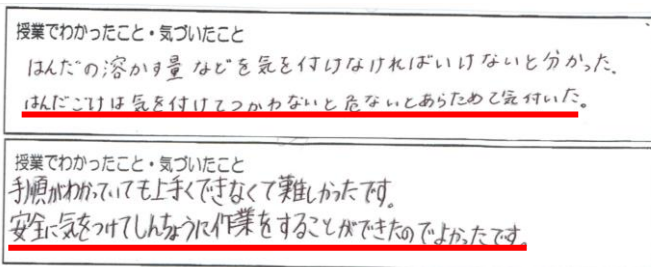 授業でわかったこと・気づいたこと
はんだの溶かす量などを気を付けなければいけないと分かった。
はんだごては気を付けてつかわないと危ないとあらためて気付いた。
授業でわかったこと・気づいたこと
手順がわかっていても上手くできなくて難しかったです。
安全に気をつけてしんちょうに作業をすることができたのでよかったです。